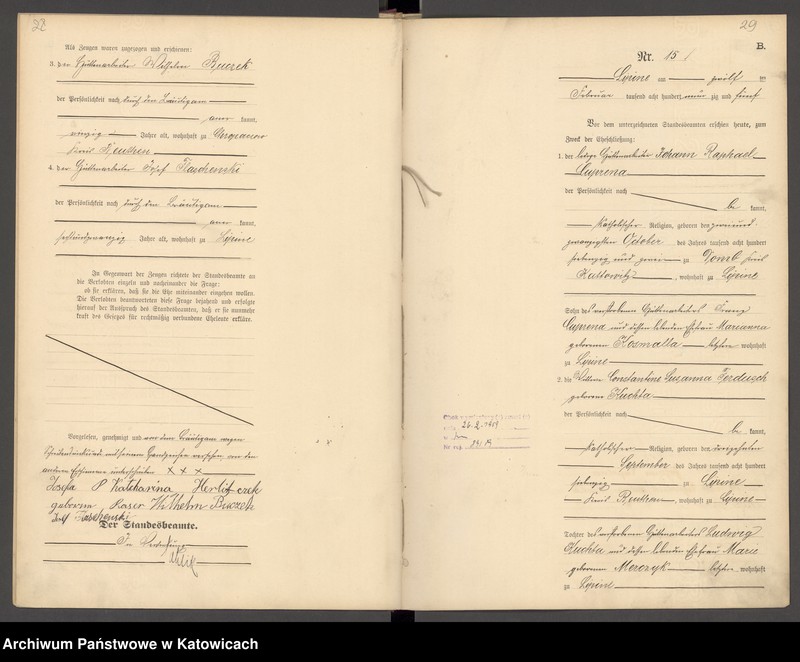 22
Als Zeugen waren zugezogen und erschienen:
3. der Hüttenarbeiter Wilhelm Buczek
der Persönlichkeit nach durch den Bräutigam
kannt,
Jahre alt, wohnhaft zu
Kreis Beuthen
4. der Hüttenarbeiter Josef Kaschenski
der Persönlichkeit nach durch den Bräutigam
kannt,
Jahre alt, wohnhaft zu Lipine
In Gegenwart der Zeugen richtete der Standesbeamte an
die Verlobten einzeln und nacheinander die Frage:
ob sie erklären, daß sie die Ehe miteinander eingehen wollen.
Die Verlobten beantworteten diese Frage bejahend und erfolgte
hierauf der Ausspruch des Standesbeamten, daß er sie nunmehr
kraft des Gesetzes für rechtmäßig verbundene Eheleute erkläre.
Vorgelesen, genehmigt und von dem Bräutigam wegen
Schreibensunkunde mit seinem Handzeichen versehen, von den
anderen Erschienenen unterschrieben x x x
Josefa P Katcharina
geborne Kaser Wilhelm Buczek
Josef Kaschenski
Der Standesbeamte.
In Vertretung
29
B.
Nr. 15
Lipine am zwölf ten
Februar tausend acht hundert neun zig und fünf
Vor dem unterzeichneten Standesbeamten erschien heute, zum
Zweck der Eheschließung:
1. der ledige Hüttenarbeiter Johann Raphael
Cuprena
der Persönlichkeit nach
be kannt,
katholischer Religion, geboren den zweiund-
zwanzigsten October des Jahres tausend acht hundert
siebenzig und zwei zu Domb Kreis
Kattowitz, wohnhaft zu Lipine
Sohn des verstorbenen Hüttenarbeiters Franz
Cuprena und dessen lebenden Ehefrau Marianna
geborenen Kosmalla letztere wohnhaft
zu Lipine
2. die Wittwe Constantine Susanna Ferdusch
geborene Kuchta
der Persönlichkeit nach
be kannt,
katholischer Religion, geboren den dreizehnten
September des Jahres tausend acht hundert
siebenzig zu Lipine
Kreis Beuthen, wohnhaft zu Lipine
Tochter des verstorbenen Hüttenarbeiters Ludwig
Kuchta und dessen lebenden Ehefrau Marie
geborenen Morczyk letztere wohnhaft
zu Lipine
Archiwum Państwowe w Katowicach